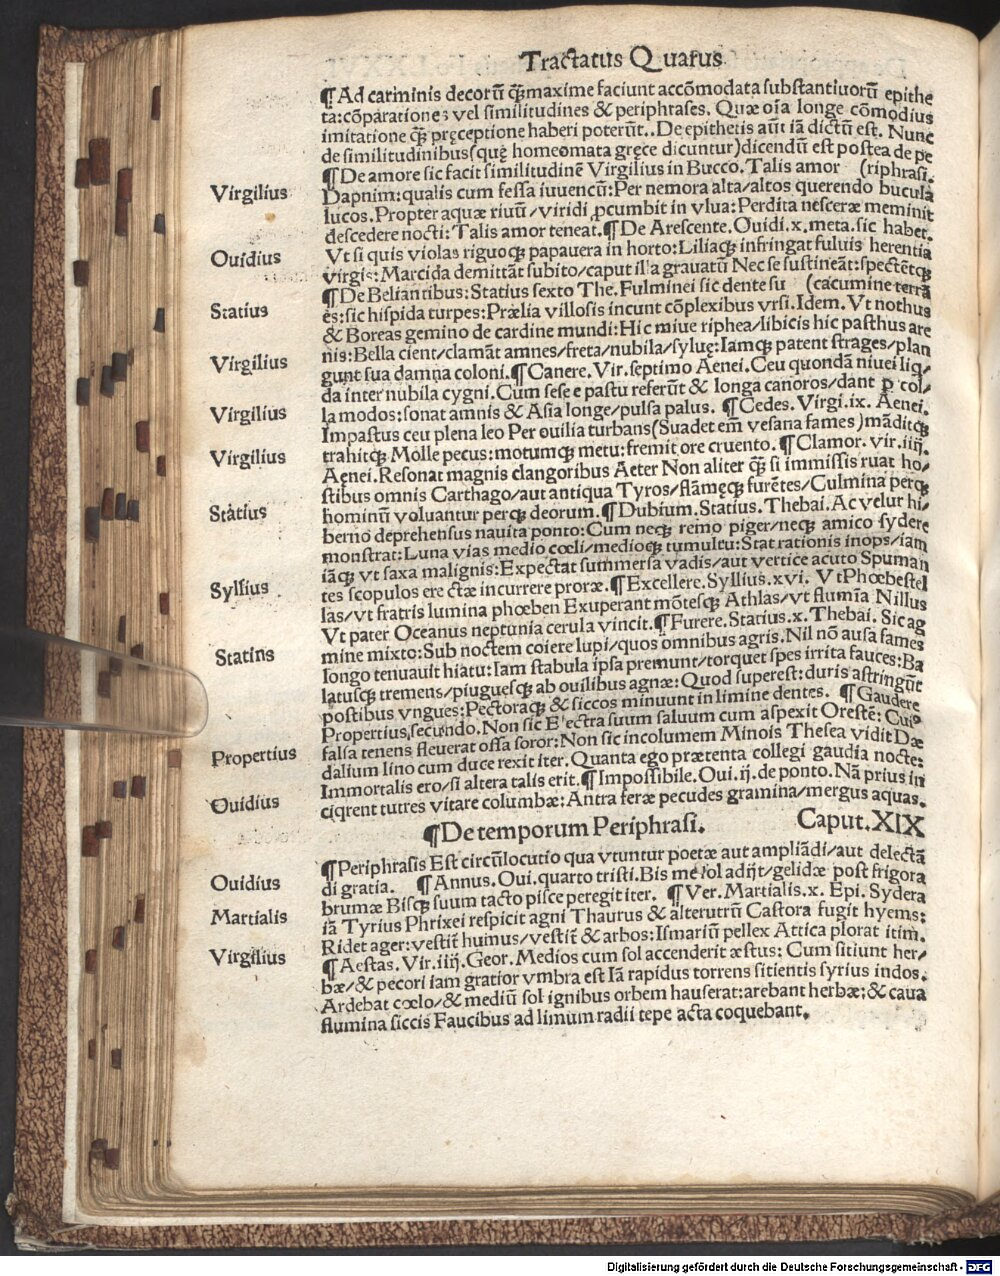 Tractatus Quartus
¶Ad carminis decorū q̄maxime faciunt accōmodata substantiuorū epithe
ta:cōparationes vel similitudines & periphrases. Quæ oīa longe cōmodius
imitatione q̄ pręceptione haberi poterūt..De epithetis aūt iā dictū est. Nunc
de similitudinibus(quę homeomata gręce dicuntur)dicendū est postea de pe
¶De amore sic facit similitudinē Virgilius in Bucco.Talis amor (riphrasi.
Virgilius Dapnim:qualis cum fessa iuuencū:Per nemora alta/altos querendo bucula
lucos.Propter aquæ riuū/viridi ꝓcumbit in vlua:Perdita nesceræ meminit
descedere nocti:Talis amor teneat.¶De Arescente.Ouidi.x.meta.sic habet.
Ouidius Vt si quis violas riguoq; papauera in horto:Liliaq; infringat fuluis herentia
virgis:Marcida demittāt subito/caput illa grauatū Nec se sustineāt:spectētq;
¶De Beliantibus:Statius sexto The.Fulminei sic dente su (cacumine terrā
Statius es:sic hispida turpes:Prælia villosis incunt cōplexibus vrsi.Idem.Vt nothus
& Boreas gemino de cardine mundi:Hic niue riphea/libicis hic pasthus are
nis:Bella cient/clamāt amnes/freta/nubila/syluę:Iamq; patent strages/plan
Virgilius gunt sua damna coloni.¶Canere.Vir.septimo Aenei.Ceu quondā niuei liq/
da inter nubila cygni.Cum sese e pastu referūt & longa canoros/dant ꝑ col/
Virgilius la modos:sonat amnis & Asia longe/pulsa palus. ¶Cedes.Virgi.ix. Aenei.
Impastus ceu plena leo Per ouilia turbans(Suadet em̄ vesana fames)māditq;
Virgilius trahitq; Molle pecus:motumq; metu:fremit ore cruento.¶Clamor.vir.iiij.
Aenei.Resonat magnis clangoribus Aeter Non aliter q̄ si immissis ruat ho/
stibus omnis Carthago/aut antiqua Tyros/flāmęq; furētes/Culmina perq;
Statius hominū voluantur perq; deorum.¶Dubium.Statius.Thebai.Ac velut hi/
berno deprehensus nauita ponto:Cum neq; remo piger/neq; amico sydere
monstrat:Luna vias medio cœli/medioq; tumultu:Stat rationis inops/iam
iāq; vt saxa malignis:Expectat summersa vadis/aut vertice acuto Spuman
Syllius tes scopulos ere ctæ incurrere proræ.¶Excellere.Syllius.xvi. VtPhœbe stel
las/vt fratris lumina phœben Exuperant mōtesq; Athlas/vt flumīa Nillus
Vt pater Oceanus neptunia cerula vincit.¶Furere.Statius.x.Thebai.Sic ag
Statius mine mixto:Sub noctem coiere lupi/quos omnibus agris.Nil nō ausa fames
longo tenuauit hiatu:Iam stabula ipsa premunt/torquet spes irrita fauces:Ba
latusq; tremens/piuguesq; ab ouilibus agnæ:Quod superest:duris astringūt
postibus vngues:Pectoraq; & siccos minuunt in limine dentes. ¶Gaudere
Propertius,secundo.Non sic Electra suum saluum cum aspexit Orestē:Cui⁹
Propertius falsa tenens fleuerat ossa soror:Non sic incolumem Minois Thesea vidit Dæ
dalium lino cum duce rexit iter.Quanta ego prætenta collegi gaudia nocte:
Immortalis ero/si altera talis erit.¶Impossibile.Oui.ij.de ponto.Nā prius in
Ouidius ciqrent tutres vitare columbæ:Antra feræ pecudes gramina/mergus aquas.
¶De temporum Periphrasi. Caput.XIX
¶Periphrasis Est circūlocutio qua vtuntur poetæ aut ampliādi/aut delectā
Ouidius di gratia. ¶Annus.Oui.quarto tristi.Bis me sol adijt/gelidæ post frigora
brumæ Bisq; suum tacto pisce peregit iter. ¶Ver.Martialis.x.Epi.Sydera
Martialis iā Tyrius Phrixei respicit agni Thaurus & alterutrū Castora fugit hyems:
Ridet ager:vestit̄ humus/vestit̄ & arbos:Ismariū pellex Attica plorat itim.
Virgilius ¶Aestas.Vir.iiij.Geor.Medios cum sol accenderit æstus:Cum sitiunt her/
bæ/& pecori iam gratior vmbra est Iā rapidus torrens sitientis syrius indos.
Ardebat cœlo/& mediū sol ignibus orbem hauserat:arebant herbæ:& caua
flumina siccis Faucibus ad limum radii tepe acta coquebant.
Digitalisierung gefördert durch die Deutsche Forschungsgemeinschaft - DFG